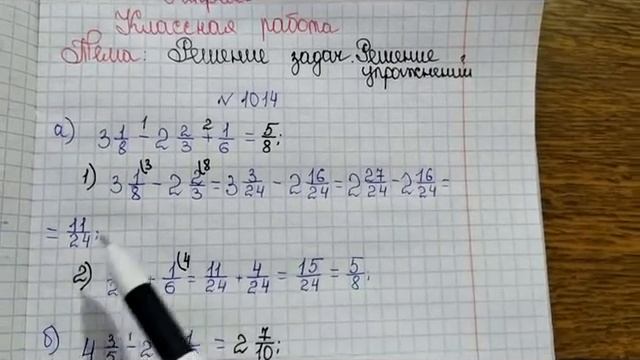 Классная работа
Тема: Решение задач. Решение
упражнений
№ 1014
а) 3 1/8 - 2 2/3 + 1/6 = 5/8;
1) 3 1/8 - 2 2/3 = 3 3/24 - 2 16/24 = 2 27/24 - 2 16/24 =
= 11/24;
2) + 1/6 = 11/24 + 4/24 = 15/24 = 5/8;
б) 4 3/5 - 2 = 2 7/10;